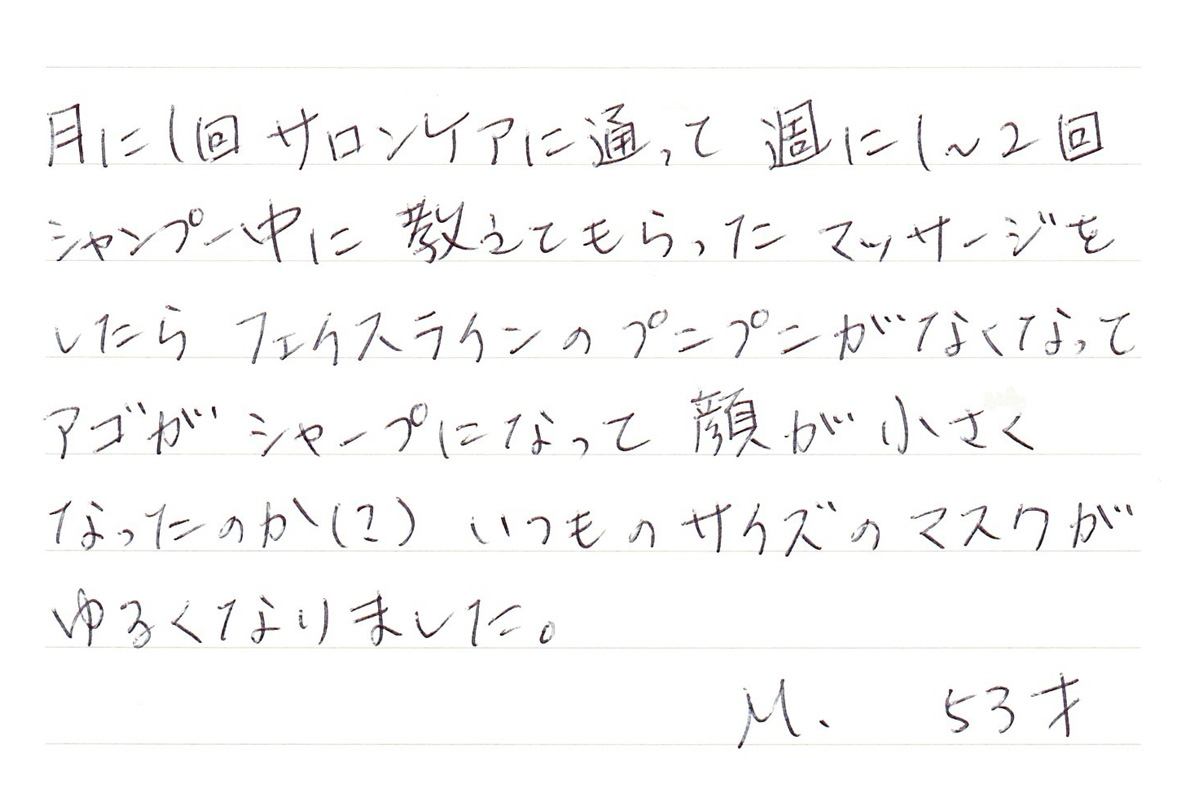 月に1回 サロンケアに通って 週に1~2回
シャンプー中に 教えてもらった マッサージを
したら フェイスラインのプニプニがなくなって
アゴが シャープになって 顔が小さく
なったのか(?) いつものサイズのマスクが
ゆるくなりました。
M. 53才